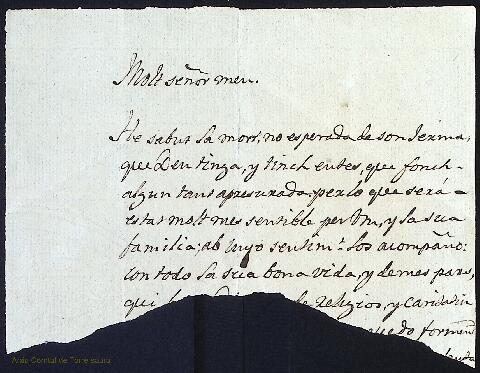 Molt señor meu.
He sabut la mort, no esperada de son Jermá,
que Deu tinga, y tinch entes, que fonch
algun tant apresurada; per lo que será
estat molt mes sentible per Vm, y la sua
familia; ab cuyo sentim.t los acompañe:
con todo la sua bona vida, y demes pars,
qui Religios, y Caridatiu
quedo
Arxiu Comtal de Torre saura